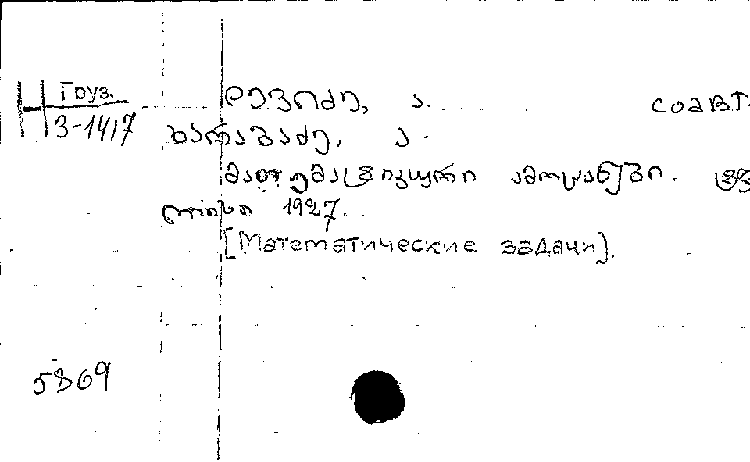 Груз. დევიძე, ა. соавт.
Н 3-1417 ხარაბაძე, ა.
მათემატიკური ამოცანები. ტფ
ილისი 1927.
[Математические задачи].
5869